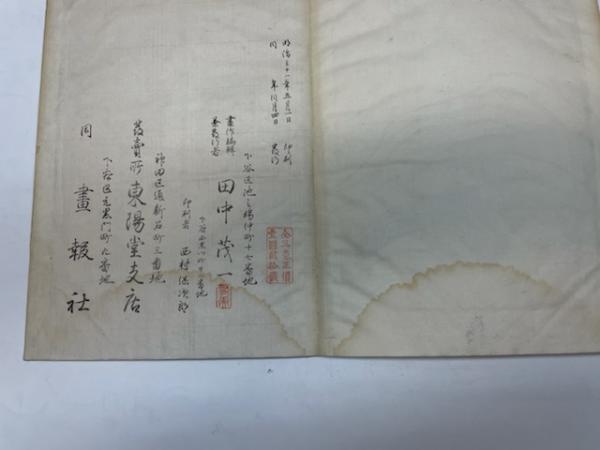 明治三十一年五月一日 印刷
同 年同月四日 発行
全三冊正價
壹圓貳拾錢
下谷区池之端仲町十七番地
畫作編輯
兼発行者 田中茂一
下谷区 番地
印刷者 西村 次郎
神田区通新石町三番地
発賣所 東陽堂支店
下谷区元黒門町九番地
同 畫報社